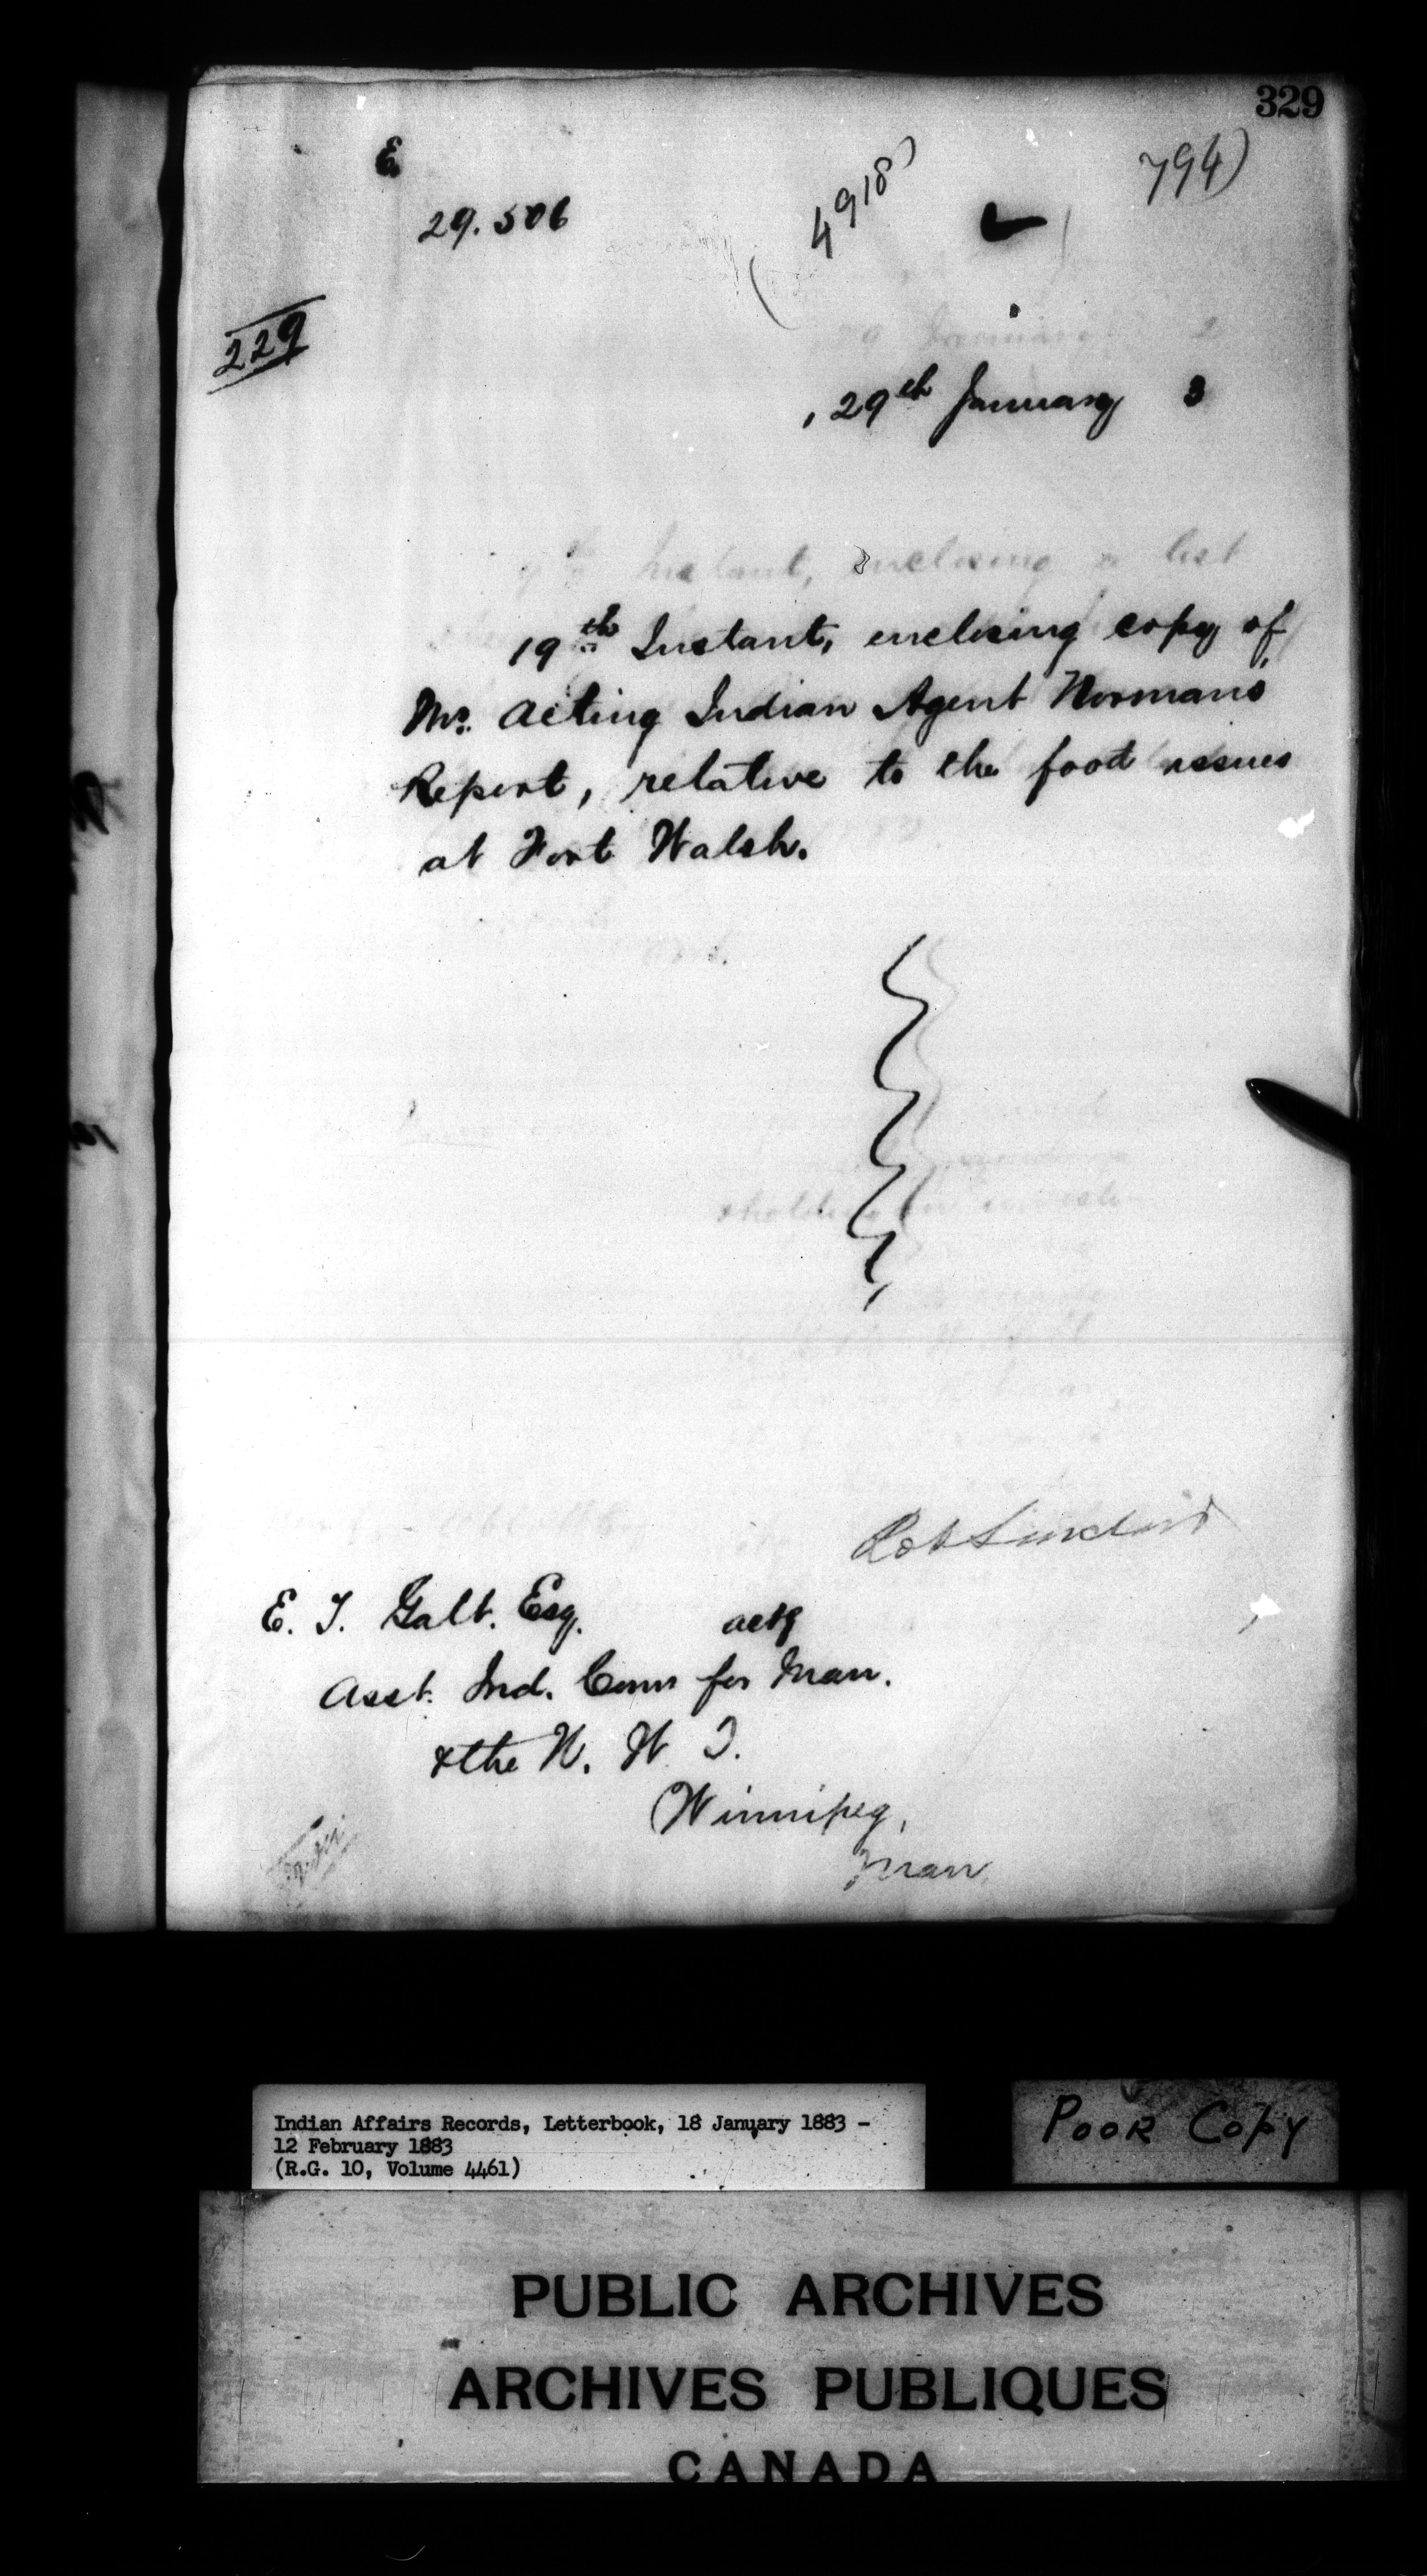 329
E
29.506
(4918)
794)
229
29th January 3
19th Instant, enclosing copy of
Mr. Acting Indian Agent Norman's
Report, relative to the food issues
at Fort Walsh.
Rob Sinclair
E. T. Galt. Esq. actg
Asst. Ind. Comr for Man.
& the N. W T.
Winnipeg,
Man.
Indian Affairs Records, Letterbook, 18 January 1883 -
12 February 1883
(R.G. 10, Volume 4461)
POOR COPY
PUBLIC ARCHIVES
ARCHIVES PUBLIQUES
CANADA